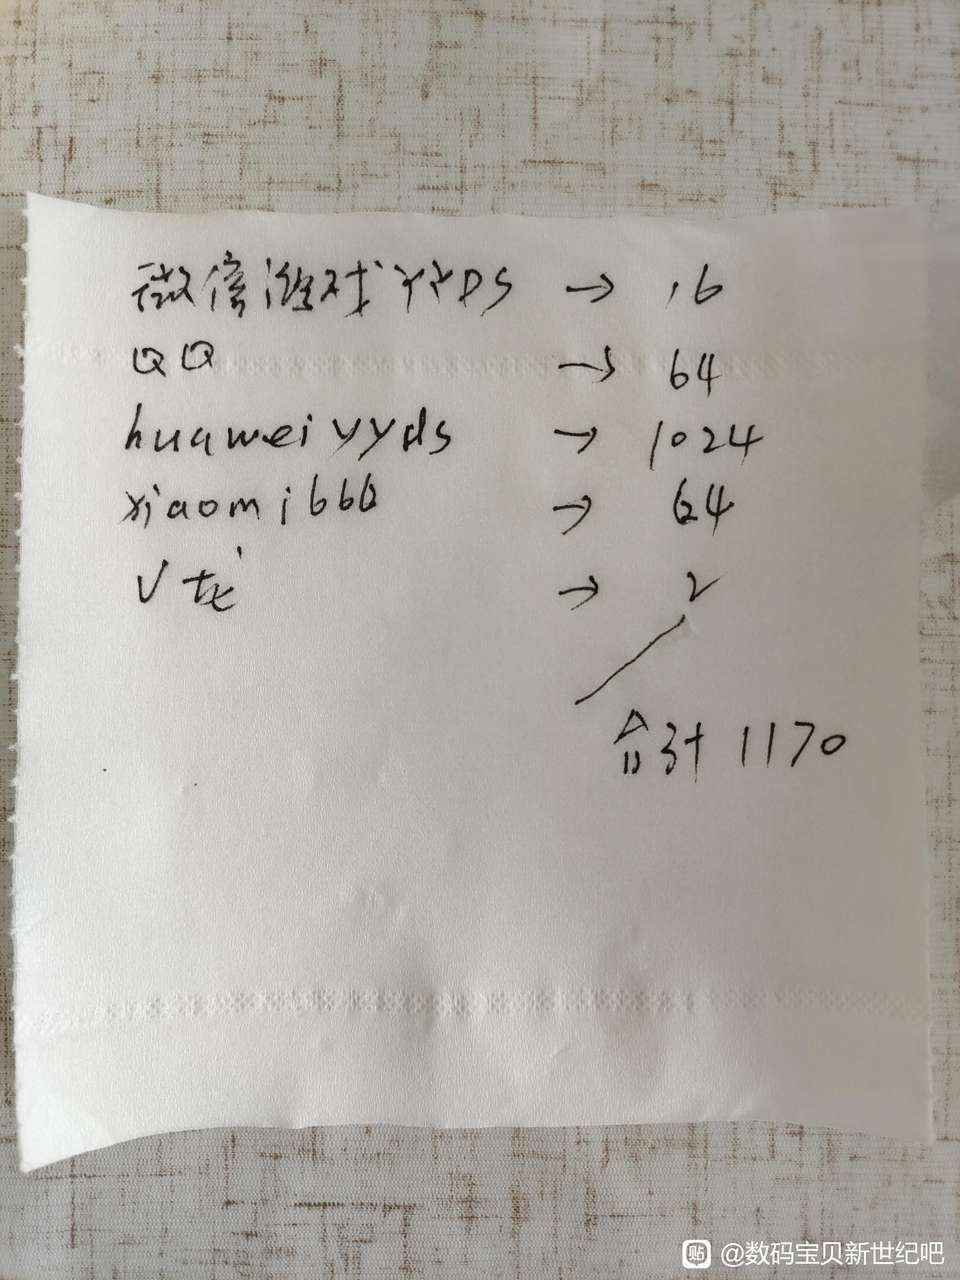 微信渔对YYDS → 16
QQ → 64
huaweiyyds → 1024
xiaomi666 → 64
V龙 → 2
合计 1170
贴 @数码宝贝新世纪吧